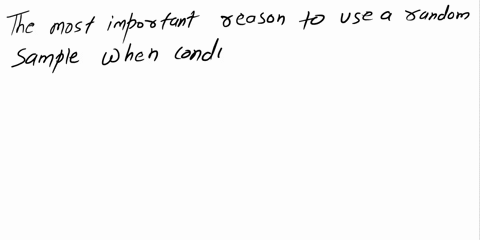 The most important reason to use a random
Sample when cond